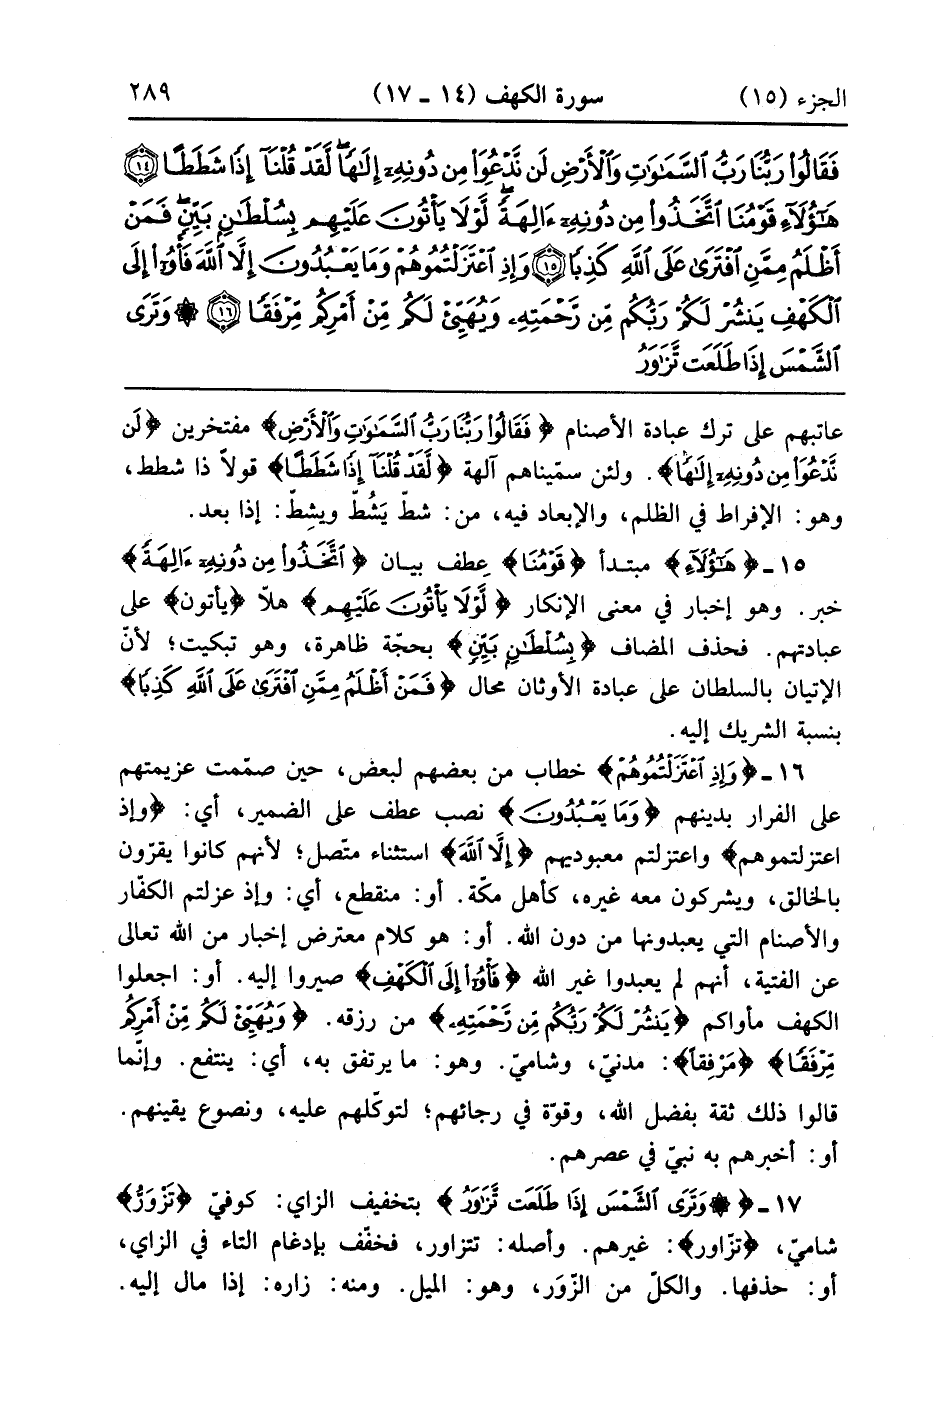 الجزء (١٥) سورة الكهف (١٤ ـ ١٧) ٢٨٩
فَقَالُوا۟ رَبُّنَا رَبُّ ٱلسَّمَـٰوَٰتِ وَٱلْأَرْضِ لَن نَّدْعُوَا۟ مِن دُونِهِۦٓ إِلَـٰهًا ۖ لَّقَدْ قُلْنَآ إِذًا شَطَطًا ١٤
هَـٰٓؤُلَآءِ قَوْمُنَا ٱتَّخَذُوا۟ مِن دُونِهِۦٓ ءَالِهَةً ۖ لَّوْلَا يَأْتُونَ عَلَيْهِم بِسُلْطَـٰنٍۭ بَيِّنٍ ۖ فَمَنْ
أَظْلَمُ مِمَّنِ ٱفْتَرَىٰ عَلَى ٱللَّهِ كَذِبًا ١٥ وَإِذِ ٱعْتَزَلْتُمُوهُمْ وَمَا يَعْبُدُونَ إِلَّا ٱللَّهَ فَأْوُۥٓا۟ إِلَى
ٱلْكَهْفِ يَنشُرْ لَكُمْ رَبُّكُم مِّن رَّحْمَتِهِۦ وَيُهَيِّئْ لَكُم مِّنْ أَمْرِكُم مِّرْفَقًا ١٦ ۞ وَتَرَى
ٱلشَّمْسَ إِذَا طَلَعَت تَّزَٰوَرُ
عاتبهم على ترك عبادة الأصنام ﴿فَقَالُوا۟ رَبُّنَا رَبُّ ٱلسَّمَـٰوَٰتِ وَٱلْأَرْضِ﴾ مفتخرين ﴿لَن
نَّدْعُوَا۟ مِن دُونِهِۦٓ إِلَـٰهًا﴾. ولئن سمّيناهم آلهة ﴿لَّقَدْ قُلْنَآ إِذًا شَطَطًا﴾ قولاً ذا شطط،
وهو: الإفراط في الظلم، والإبعاد فيه، من: شطّ يَشُطّ ويشِطّ: إذا بعد.
١٥ ـ ﴿هَـٰٓؤُلَآءِ﴾ مبتدأ ﴿قَوْمُنَا﴾ عطف بيان ﴿ٱتَّخَذُوا۟ مِن دُونِهِۦٓ ءَالِهَةً﴾
خبر. وهو إخبار في معنى الإنكار ﴿لَّوْلَا يَأْتُونَ عَلَيْهِم﴾ هلاّ ﴿يأتون﴾ على
عبادتهم. فحذف المضاف ﴿بِسُلْطَـٰنٍۭ بَيِّنٍ﴾ بحجّة ظاهرة، وهو تبكيت؛ لأنّ
الإتيان بالسلطان على عبادة الأوثان محال ﴿فَمَنْ أَظْلَمُ مِمَّنِ ٱفْتَرَىٰ عَلَى ٱللَّهِ كَذِبًا﴾
بنسبة الشريك إليه.
١٦ ـ ﴿وَإِذِ ٱعْتَزَلْتُمُوهُمْ﴾ خطاب من بعضهم لبعض، حين صمّمت عزيمتهم
على الفرار بدينهم ﴿وَمَا يَعْبُدُونَ﴾ نصب عطف على الضمير، أي: ﴿وإذ
اعتزلتموهم﴾ واعتزلتم معبوديهم ﴿إِلَّا ٱللَّهَ﴾ استثناء متّصل؛ لأنهم كانوا يقرّون
بالخالق، ويشركون معه غيره، كأهل مكّة. أو: منقطع، أي: وإذ عزلتم الكفّار
والأصنام التي يعبدونها من دون الله. أو: هو كلام معترض إخبار من الله تعالى
عن الفتية، أنهم لم يعبدوا غير الله ﴿فَأْوُۥٓا۟ إِلَى ٱلْكَهْفِ﴾ صيروا إليه. أو: اجعلوا
الكهف مأواكم ﴿يَنشُرْ لَكُمْ رَبُّكُم مِّن رَّحْمَتِهِۦ﴾ من رزقه. ﴿وَيُهَيِّئْ لَكُم مِّنْ أَمْرِكُم
مِّرْفَقًا﴾ ﴿مَرْفِقاً﴾: مدنيّ، وشاميّ. وهو: ما يرتفق به، أي: ينتفع. وإنّما
قالوا ذلك ثقة بفضل الله، وقوّة في رجائهم؛ لتوكّلهم عليه، ونصوع يقينهم.
أو: أخبرهم به نبيّ في عصرهم.
١٧ ـ ﴿۞ وَتَرَى ٱلشَّمْسَ إِذَا طَلَعَت تَّزَٰوَرُ﴾ بتخفيف الزاي: كوفيّ ﴿تَزْوَرُّ﴾
شاميّ، ﴿تزّاور﴾: غيرهم. وأصله: تتزاور، فخفّف بإدغام التاء في الزاي،
أو: حذفها. والكلّ من الزّوَر، وهو: الميل. ومنه: زاره: إذا مال إليه.